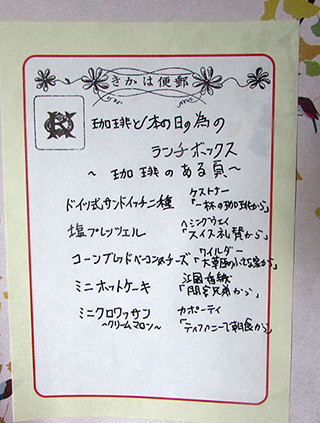 きかは便郵
珈琲と本の日の為の
ランチボックス
～ 珈琲のある頁 ～
ドイツ式サンドイッチ二種 ケストナー「一杯の珈琲から」
塩プレッツェル ヘミングウェイ「スイス礼賛から」
コーンブレッドベーコン&チーズ ワイルダー「大草原の小さな家から」
ミニホットケーキ 江國香織「間宮兄弟から」
ミニクロワッサン カポーティ「ティファニーで朝食から」
～クリームマロン～